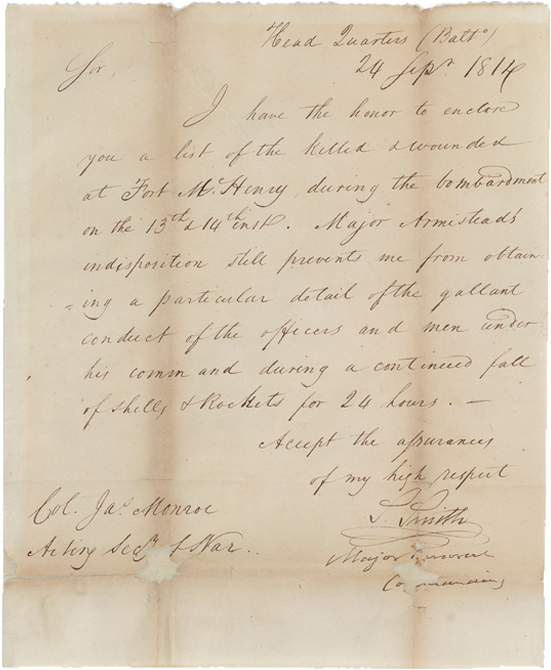 Head Quarters (Balto)
24 Sepr. 1814
Sir,
I have the honor to enclose
you a list of the killed & wounded
at Fort McHenry during the bombardment
on the 13th & 14th inst. Major Armistead's
indisposition still prevents me from obtain
=ing a particular detail of the gallant
conduct of the officers and men under
his command during a continued fall
of shells & Rockets for 24 hours. —
Accept the assurances
of my high respect
S. Smith
Major General
Commanding
Col. Jas. Monroe
Acting Secy. of War..